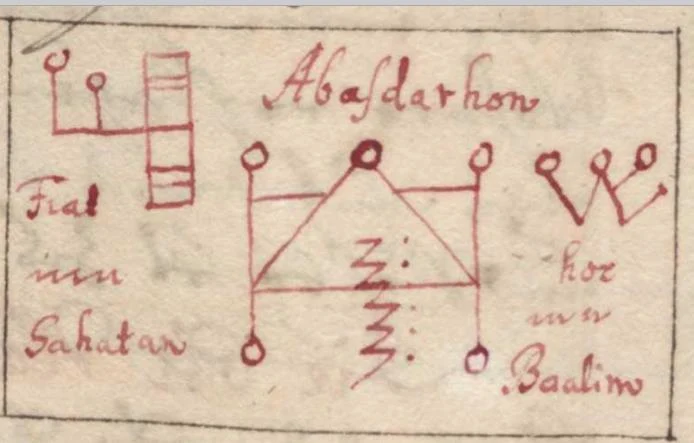 Abaſdarhon
Fial
Sahatan
hor
Baalim